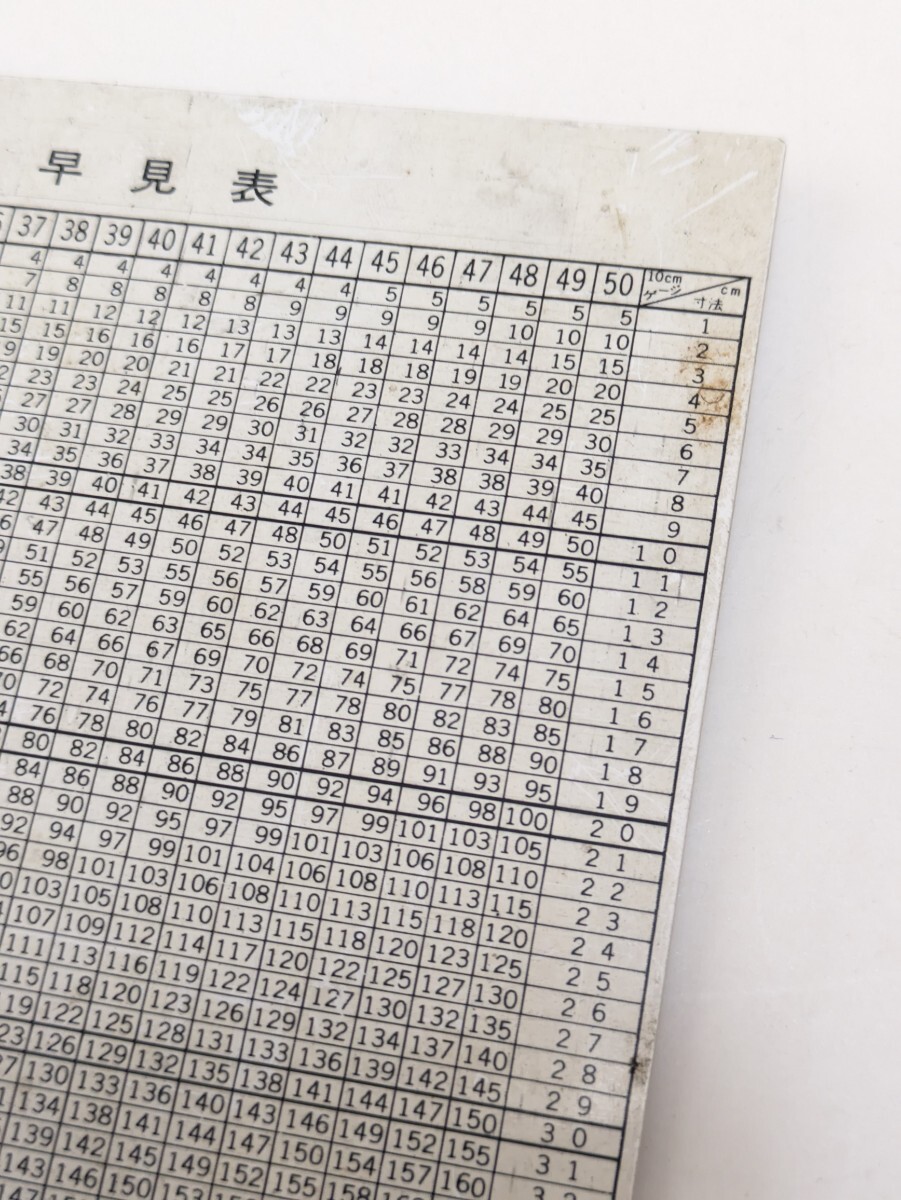 早見表
37 38 39 40 41 42 43 44 45 46 47 48 49 50 10cm ゲージ cm 寸法
4 4 4 4 4 4 4 4 5 5 5 5 5 5 1
7 8 8 8 8 8 9 9 9 9 9 10 10 10 2
11 11 12 12 12 13 13 13 14 14 14 14 15 15 3
15 15 16 16 16 17 17 18 18 18 19 19 20 20 4
19 20 20 21 21 22 22 23 23 24 24 25 25 5
23 23 24 25 25 26 26 27 28 28 29 29 30 6
27 27 28 29 29 30 31 32 32 33 34 34 35 7
30 31 32 33 34 34 35 36 37 38 38 39 40 8
34 35 36 37 38 39 40 41 41 42 43 44 45 9
38 39 40 41 42 43 44 45 46 47 48 49 50 10
42 43 44 45 46 47 48 50 51 52 53 54 55 11
47 48 49 50 52 53 54 55 56 58 59 60 12
51 52 53 55 56 57 59 60 61 62 64 65 13
55 56 57 59 60 62 63 64 66 67 69 70 14
59 60 62 63 65 66 68 69 71 72 74 75 15
62 64 66 67 69 70 72 74 75 77 78 80 16
66 68 70 71 73 75 77 78 80 82 83 85 17
70 72 74 76 77 79 81 83 85 86 88 90 18
76 78 80 82 84 86 87 89 91 93 95 19
80 82 84 86 88 90 92 94 96 98 100 20
84 86 88 90 92 95 97 99 101 103 105 21
88 90 92 95 97 99 101 103 106 108 110 22
92 94 97 99 101 104 106 108 110 113 115 23
96 98 101 103 106 108 110 113 115 118 120 24
103 105 108 110 113 115 118 120 123 125 25
107 109 112 114 117 120 122 125 127 130 26
111 113 116 119 122 124 127 130 132 135 27
115 118 120 123 126 129 132 134 137 140 28
119 122 125 128 131 133 136 139 142 145 29
126 129 132 135 138 141 144 147 150 30
130 133 136 140 143 146 149 152 155 31
134 138 141 144 147 150 154 157 160
139 142 145 149 152 155 158
143 146 150 153